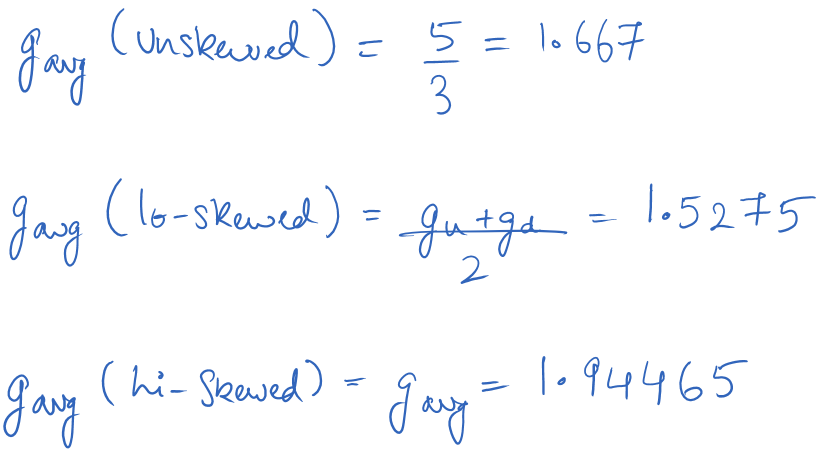 g_avg (unskewed) = 5/3 = 1.667
g_avg (lo-skewed) = (g_u+g_d)/2 = 1.5275
g_avg (hi-skewed) = g_avg = 1.94465